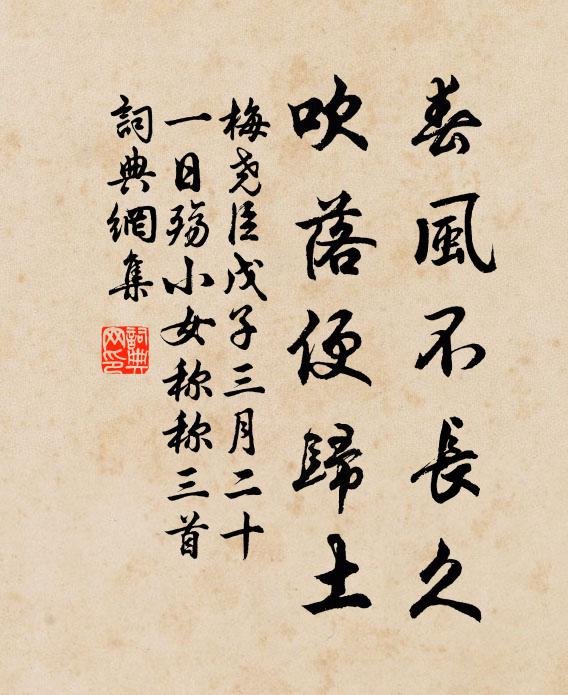 春風不長久
吹落便歸土
梅堯臣戊子三月二十
一日殤小女称称三首
詞典網集
詞典
网印